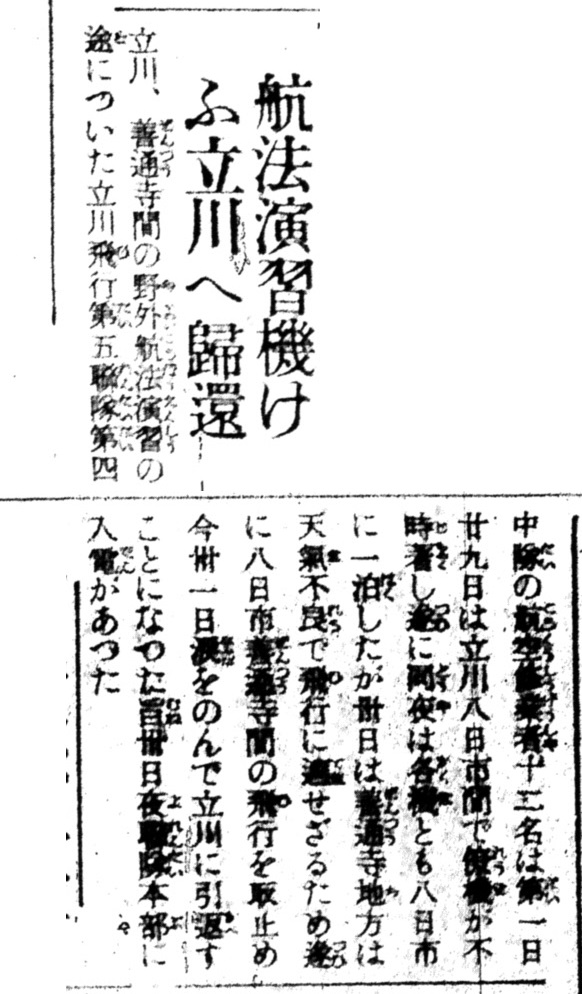 航法演習機け
ふ立川へ歸還
立川、善通寺間の野外航法演習の
途についた立川飛行第五聯隊第四
中隊の航空修業者十二名は第一日
廿九日は立川八日市間で僚機が不
時著し遂に同夜は各機とも八日市
に一泊したが卅日は善通寺地方は
天氣不良で飛行に適せざるため遂
に八日市善通寺間の飛行を取止め
今卅一日涙をのんで立川に引返す
ことになつた旨卅日夜聯隊本部に
入電があつた